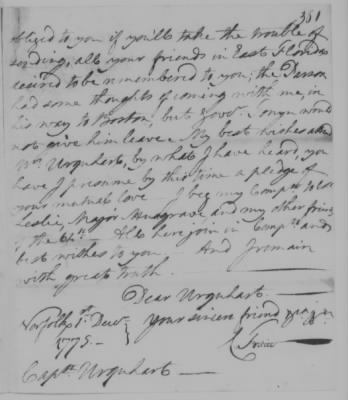 381
obliged to you if you'll take the trouble of
sending; all your friends in East Florida
desired to be remembered to you; the Parson
had some thoughts of coming with me, in
his way to Boston, but Govr. Tonyn would
not give him leave. My best wishes attend
Mrs. Urquhart, by what I have heard, you
have I presume by this time a pledge of
your mutual love — I beg my Compts. to Col.
Leslie, Major Musgrave, and my other friends
of the 64th. All here join in Compts. and
best wishes to you. And I remain
with great truth.
Dear Urquhart
Norfolk 1st. Decr.
1775 —
Your sincere friend
Captn. Urquhart —